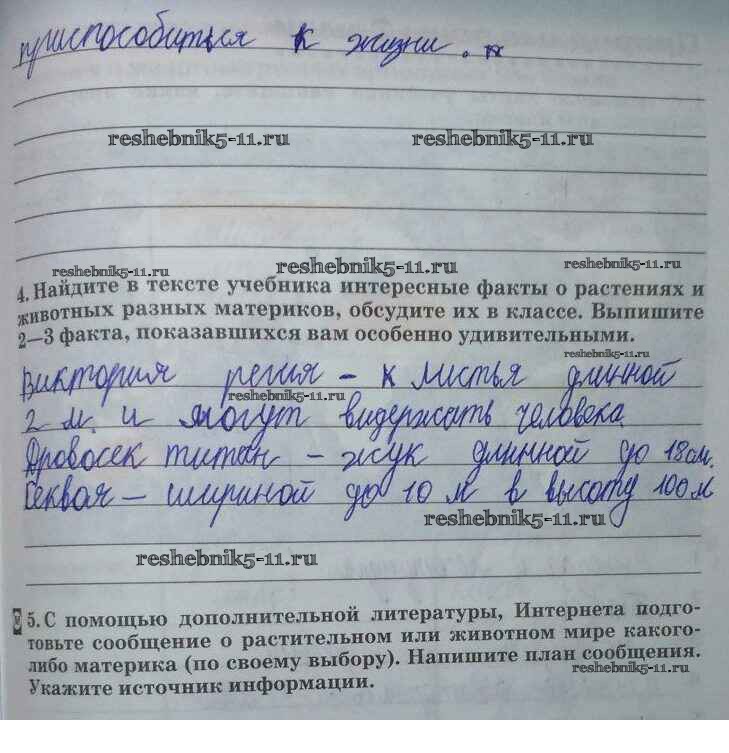 приспособиться к жизни.
reshebnik5-11.ru reshebnik5-11.ru
reshebnik5-11.ru reshebnik5-11.ru reshebnik5-11.ru
4. Найдите в тексте учебника интересные факты о растениях и
животных разных материков, обсудите их в классе. Выпишите
2—3 факта, показавшихся вам особенно удивительными.
reshebnik5-11.ru
Виктория регия - листья длинной
reshebnik5-11.ru
2 м. и могут видержать человека
Дровосек титан - жук длинной до 18 см.
Секвоя - шириной до 10 м в высоту 100 м
reshebnik5-11.ru
reshebnik5-11.ru
5. С помощью дополнительной литературы, Интернета подго-
товьте сообщение о растительном или животном мире какого-
либо материка (по своему выбору). Напишите план сообщения.
reshebnik5-11.ru
Укажите источник информации.